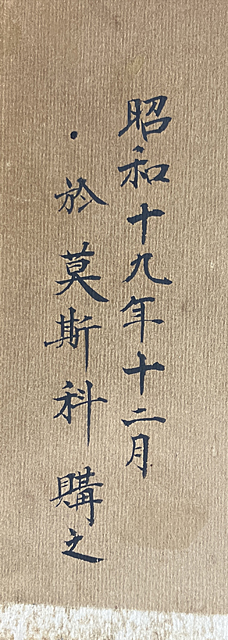 昭和十九年十二月
・於莫斯科購之